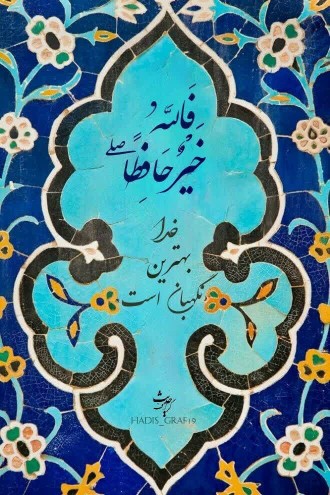 فَاللَّهُ
خَيْرٌ حَافِظًا ۖ
خدا
بهترین
نگهبان است
HADIS_GRAF19